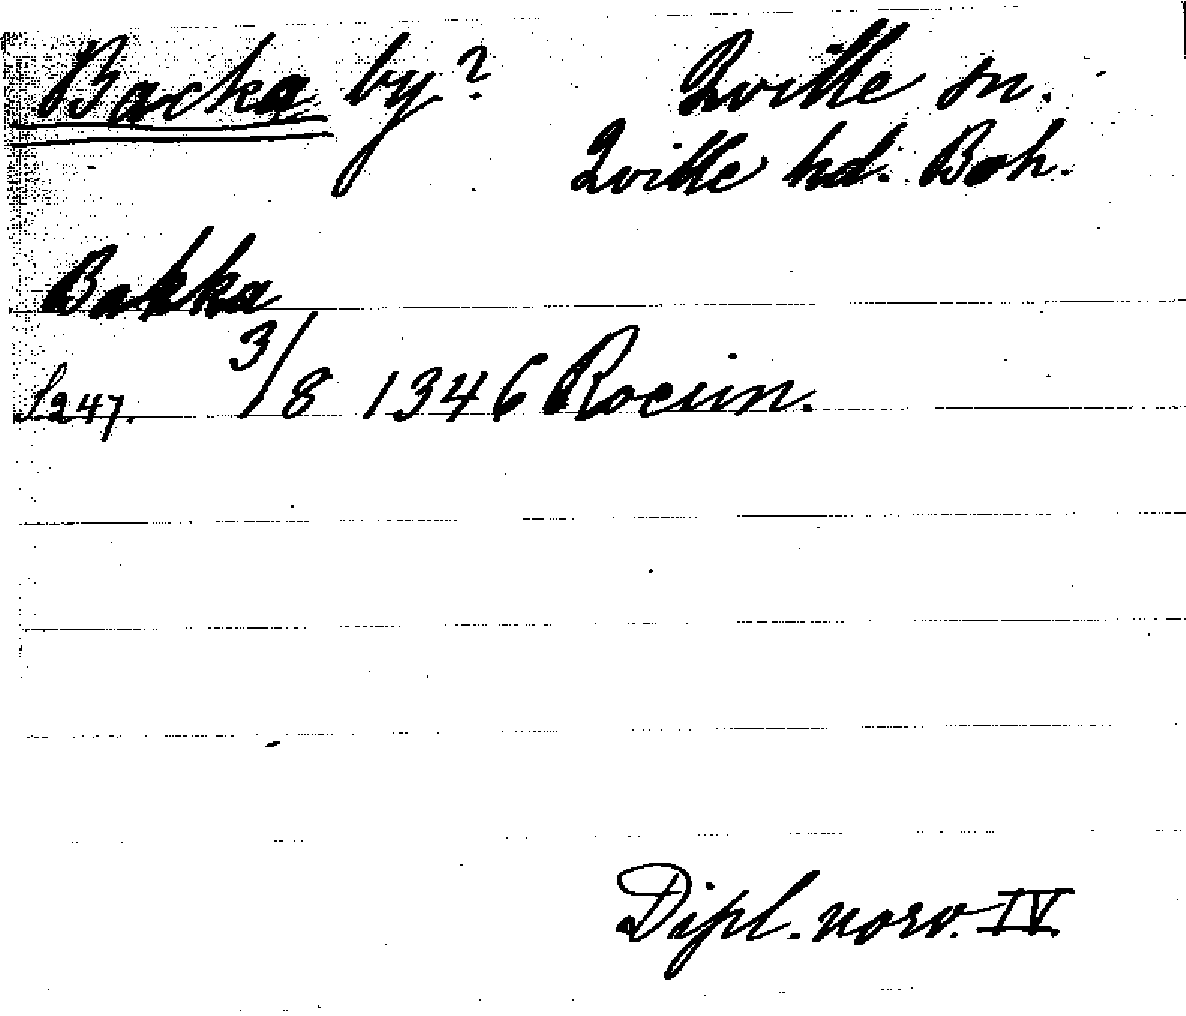 Backa by? Qville sn.
Qville hd. Boh.
Bakka
S 247. 3/8 1346 Rocun.
Dipl. norv. IV